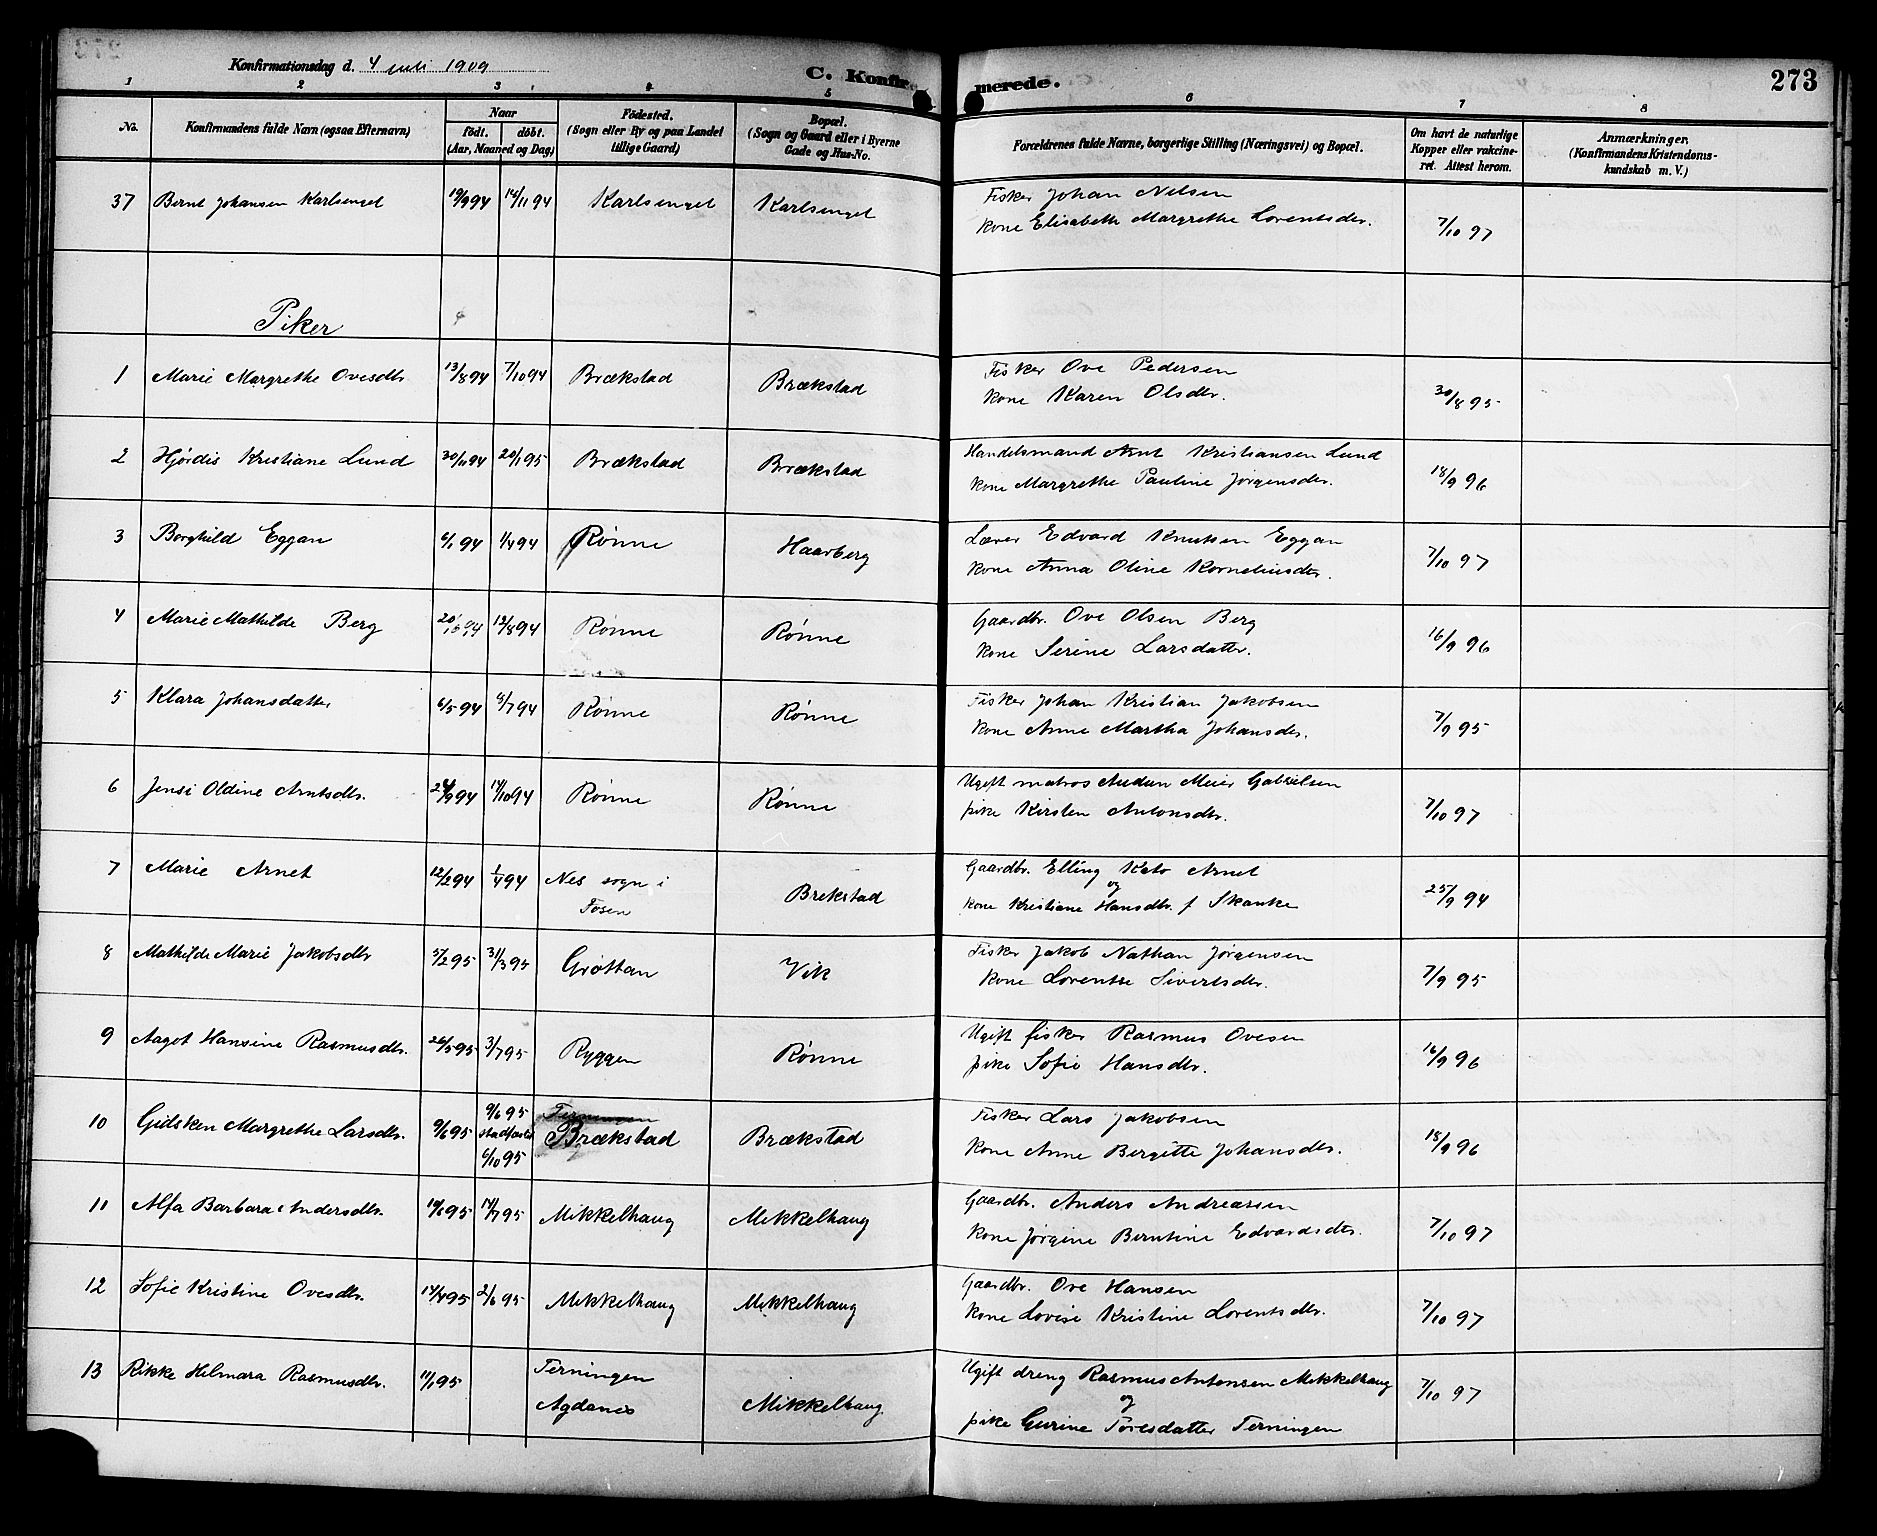 Konfirmationsdag d. 4 juli 1909
C. Konfirmerede.
273
1 2 3 4 5 6 7 8
No.
Konfirmandens fulde Navn (ogsaa Efternavn)
Naar
født. døbt.
(Aar, Maaned og Dag)
Fødested.
(Sogn eller By og paa Landet
tillige Gaard)
Bopæl.
(Sogn og Gaard eller i Byerne
Gade og Hus-No.
Forældrenes fulde Navne, borgerlige Stilling (Næringsvei) og Bopæl.
Om havt de naturlige
Kopper eller vakcine-
ret. Attest herom.
Anmærkninger.
(Konfirmandens Kristendoms-
kundskab m. V.)
37 Bernt Johansen Karlsenget 19/9 94 14/11 94 Karlsenget Karlsenget Fisker Johan Nilsen
kone Elisabeth Margrethe Lorentsdtr. 7/10 97
Piker
1 Marie Margrethe Ovesdtr. 13/8 94 7/10 94 Brækstad Brækstad Fisker Ove Pedersen
kone Karen Olsdtr. 30/8 95
2 Hjørdis Kristiane Lund 30/11 94 20/1 95 Brækstad Brækstad Handelsmand Arnt Kristiansen Lund
kone Margrethe Pauline Jørgensdtr. 18/9 96
3 Borghild Eggan 6/1 94 1/4 94 Rønne Haarberg Lærer Edvard Knutsen Eggan
kone Anna Oline Korneliusdtr. 7/10 97
4 Marie Mathilde Berg 12/8 94 Rønne Rønne Gaardbr. Ove Olsen Berg
kone Serine Larsdatter. 16/9 96
5 Klara Johansdatter 6/5 94 8/7 94 Rønne Rønne Fisker Johan Kristian Jakobsen
kone Anne Martha Johansdtr. 7/9 95
6 Jensi Oldine Arntsdtr. 24/9 94 14/10 94 Rønne Rønne Ugift matros Audun Meier Gabrielsen
pike Kirsten Antonsdtr. 7/10 97
7 Marie Arnet 12/2 94 1/4 94 Nes sogn i
Fosen Brekstad Gaardbr. Elling Kato Arnet
og
kone Kristiane Hansdtr. f Skanke 25/9 94
8 Mathilde Marie Jakobsdtr 5/2 95 31/3 95 Grøttan Vik Fisker Jakob Nathan Jørgensen
kone Lorentse Sivertsdtr. 7/9 95
9 Aagot Hansine Rasmusdtr. 26/5 95 3/7 95 Ryggen Rønne Ugift fisker Rasmus Ovesen
pike Sofie Hansdtr. 16/9 96
10 Gidsken Margrethe Larsdtr. 9/6 95 9/6 95
stadfæstet
6/10 95 Brækstad Brækstad Fisker Lars Jakobsen
kone Anne Bergitte Johansdtr. 18/9 96
11 Alfa Barbara Andersdtr. 14/6 95 14/7 95 Mikkelhaug Mikkelhaug Gaardbr. Anders Andreassen
kone Jørgine Berntine Edvardsdtr. 7/10 97
12 Sofie Kristine Ovesdtr. 14/4 95 2/6 95 Mikkelhaug Mikkelhaug Gaardbr. Ove Hansen
kone Lovise Kristine Lorentsdtr. 7/10 97
13 Rikke Helmara Rasmusdtr. 11/1 95 Terningen
Agdanes Mikkelhaug Ugift dreng Rasmus Antonsen Mikkelhaug
og
pike Gurine Toresdatter Terningen 7/10 97